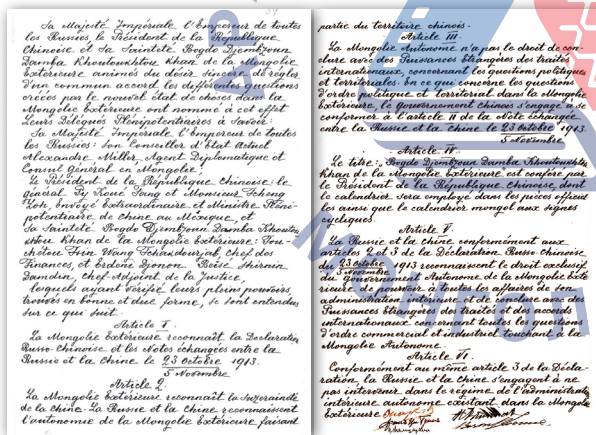 Sa Majesté Impériale l'Empereur de toutes
les Russies, le Président de la République
Chinoise et Sa Sainteté Bogdo Djembzoun
Damba Khoutoukhtou Khan de la Mongolie
Extérieure animés du désir sincère de régler
d'un commun accord les différentes questions
créées par le nouvel état de choses dans la
Mongolie Extérieure ont nommé à cet effet
Leurs Délégués Plénipotentiaires à savoir:
Sa Majesté Impériale l'Empereur de toutes
les Russies: son Conseiller d'Etat Actuel
Alexandre Miller, Agent Diplomatique et
Consul Général en Mongolie;
Le Président de la République Chinoise: le
général Py Koué Fang et Monsieur Tcheng
Loh, Envoyé Extraordinaire et Ministre Pléni-
potentiaire de Chine au Méxique, et
Sa Sainteté Bogdo Djembzoun Damba Khoutou-
khtou Khan de la Mongolie Extérieure:
Finances et Erdeni Djonon Beise Shirnin
Damdin, Chef Adjoint de la Justice
lesquels ayant vérifié leurs pleins pouvoirs,
trouvés en bonne et due forme, se sont entendus
sur ce qui suit:
Article I.
La Mongolie Extérieure reconnaît la Déclaration
Russo-Chinoise et les Notes échangées entre la
Russie et la Chine le 23 Octobre 1913.
5 Novembre
Article 2.
La Mongolie Extérieure reconnaît la suzeraineté
de la Chine. La Russie et la Chine reconnaissent
l'autonomie de la Mongolie Extérieure, faisant
partie du territoire chinois.
Article III.
La Mongolie Autonome n'a pas le droit de con-
clure avec des Puissances étrangères des traités
internationaux, concernant les questions politiques
et territoriales. En ce qui concerne les questions
d'ordre politique et territorial dans la Mongolie
Extérieure, le Gouvernement Chinois s'engage à se
conformer à l'article II de la Note échangée
entre la Russie et la Chine le 23 Octobre 1913.
5 Novembre
Article IV.
Le titre: Bogdo Djembzoun Damba Khoutoukhtou
Khan de la Mongolie Extérieure est conféré par
le Président de la République Chinoise, dont
le calendrier sera employé dans les pièces officiel
les ainsi que le calendrier mongol aux signes
cycliques.
Article V.
La Russie et la Chine conformément aux
articles 2 et 3 de la Déclaration Russo-Chinoise
du 23 Octobre 1913 reconnaissent le droit exclusif
5 Novembre
du Gouvernement Autonome de la Mongolie Exté-
rieure de pourvoir à toutes les affaires de son
administration intérieure et de conclure avec des
Puissances étrangères des traités et des accords
internationaux concernant toutes les questions
d'ordre commercial et industriel touchant à la
Mongolie Autonome.
Article VI.
Conformément au même article 3 de la Décla-
ration, la Russie et la Chine s'engagent à ne
pas intervenir dans le régime de l'administration
intérieure autonome existant dans la Mongolie
Extérieure